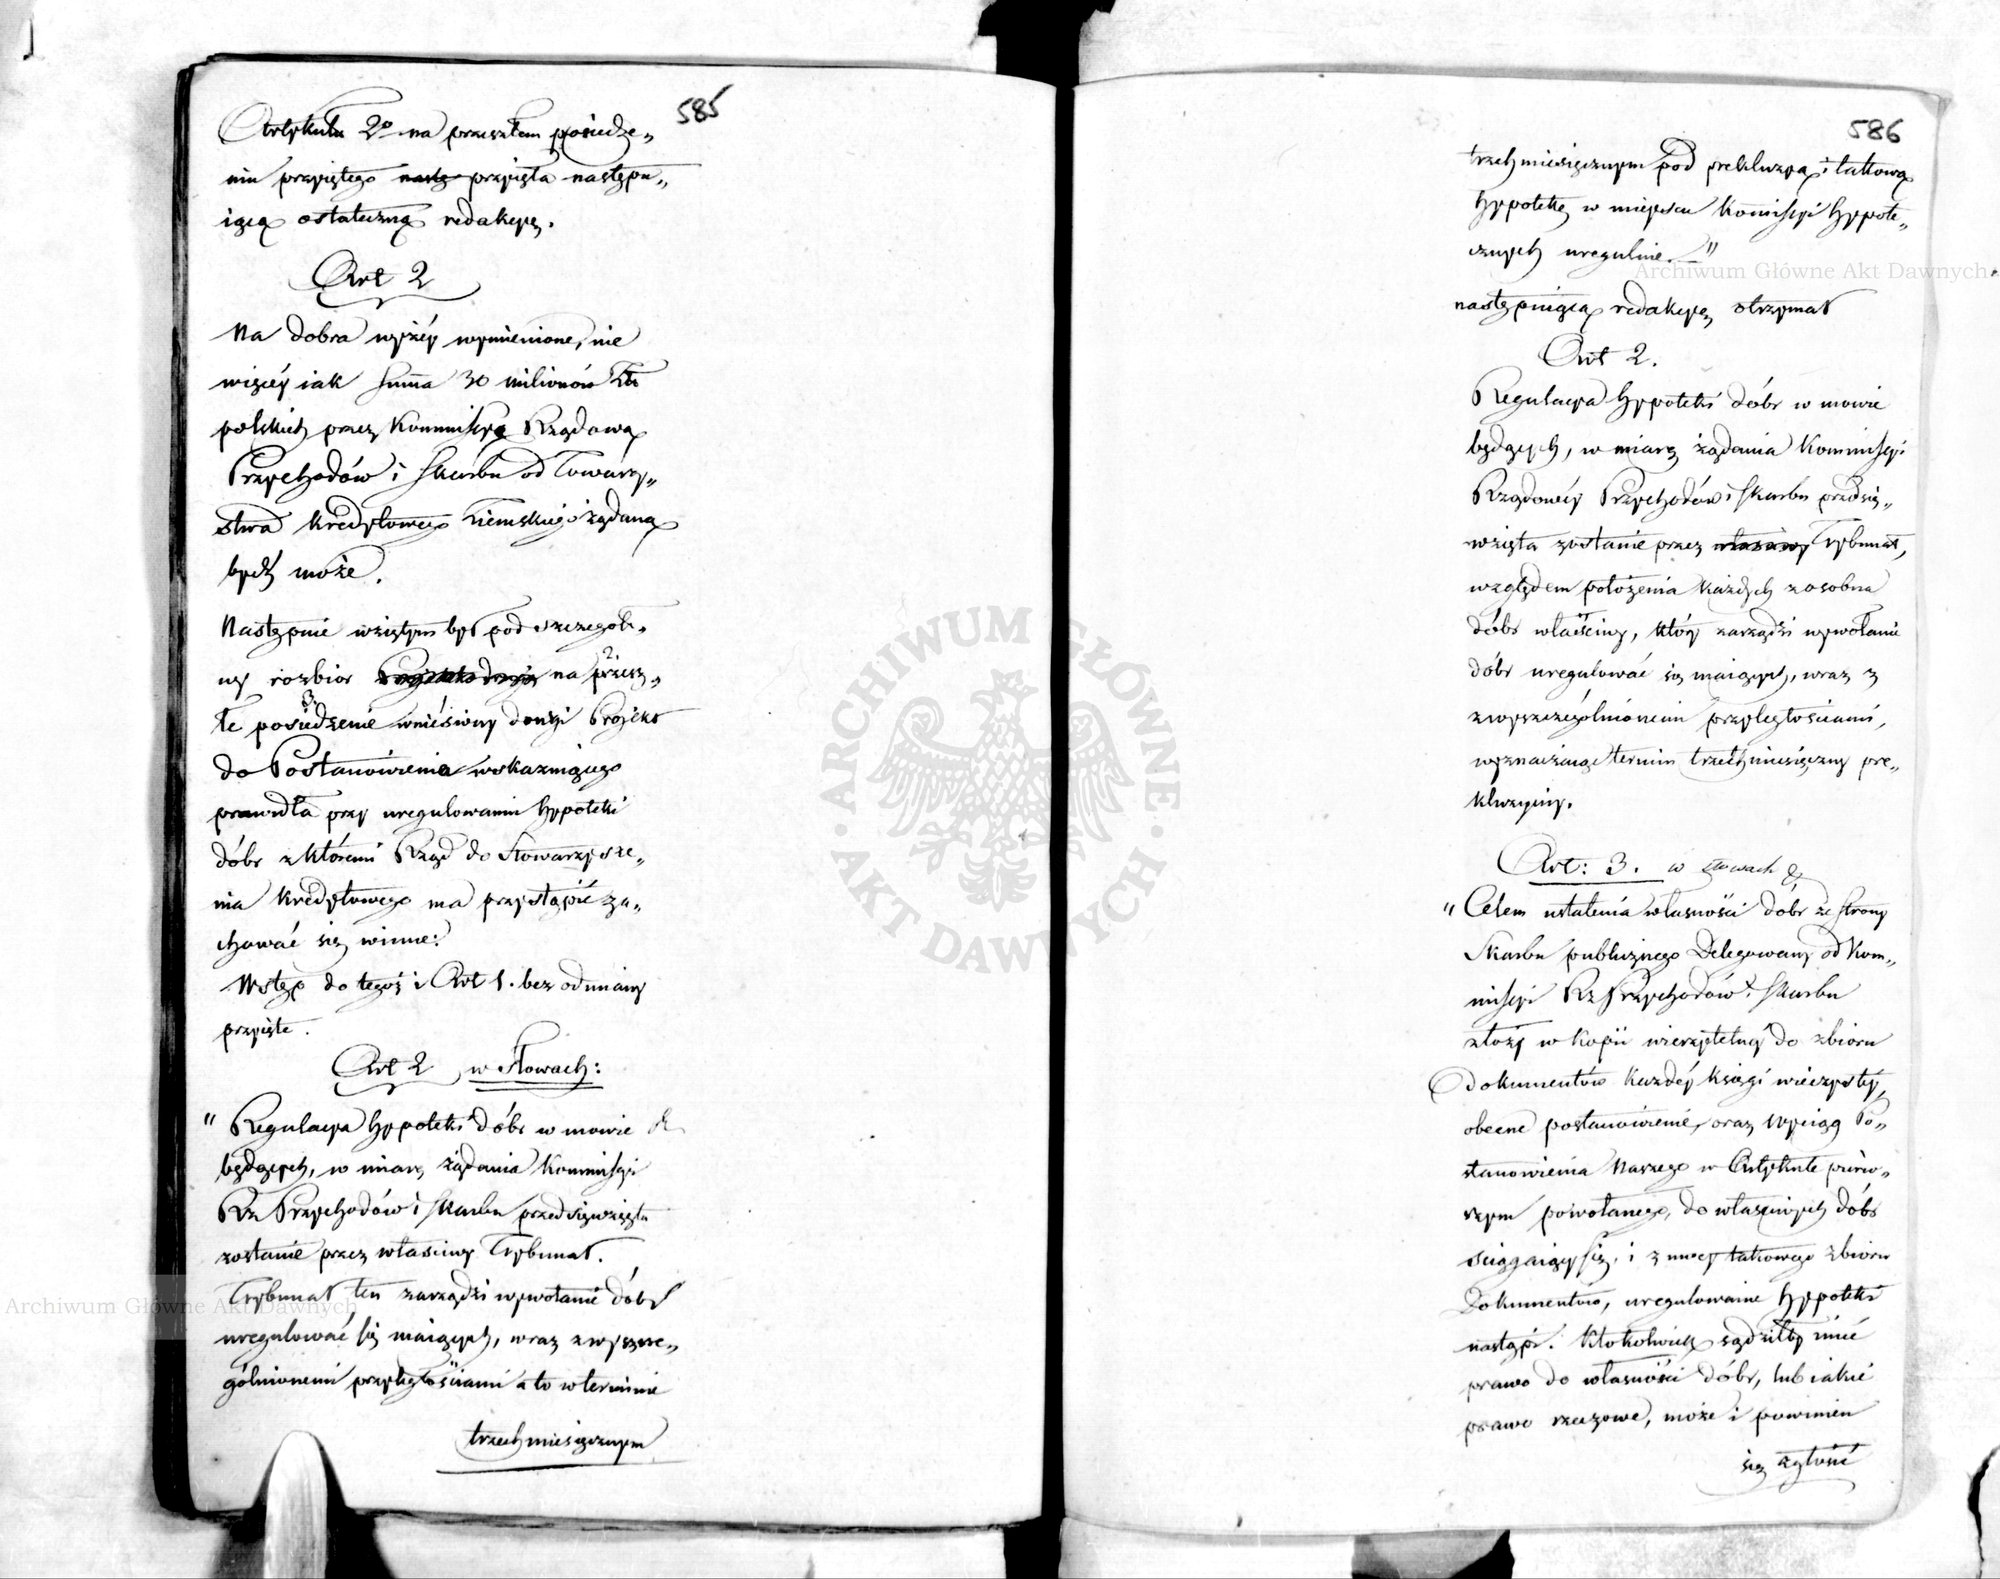 585
Artykułu 2º na przeszłem posiedze„
niu przyiętego nastę przyięta następu„
iącą ostateczną redakcyę.
Art 2
Na dobra wyżéy wymienione, nie
więcéy iak summa 30 milionów Złt
polskich przez Kommissyą Rządową
Przychodów i Skarbu od Towarzy„
stwa Kredytowego Ziemskiego żądaną
bydź może.
Następnie wziętym był pod szczegół„
ny rozbior na przesz„
łe posiedzenie wnieśiony drugi Projekt
do Postanowienia wskazuiącego
prawidła przy uregulowaniu hypoteki
dóbr z któremi Rząd do Stowarzysze„
nia Kredytowego ma przystąpić za„
chować się winne:
Wstęp do tegoż i Art 1. bez odmiany
przyięte.
Art 2 w Słowach:
" Regulacya hypoteki dóbr w mowie
będących, w miarę żądania Kommissyi
Rz Przychodów i Skarbu przedsięwzięta
zostanie przez właściwy Trybunał.
Trybunał ten zarządzi wywołanie dóbr
uregulować się maiących, wraz z wyszcze„
gólnionemi przyległościami a to w terminie
trzechmiesięcznym
586
trzechmiesięcznym pod prekluzyą i takową
hypotekę w mieyscu Kommissyi hypote„
cznych ureguluie."
następuiącą redakcyę otrzymał
Art 2.
Regulacya hypoteki dóbr w mowie
będących, w miarę żądania Kommissyi
Rządowéy Przychodów i Skarbu przedsię„
wzięta zostanie przez właściwy Trybunał,
względem położenia każdych zosobna
dóbr właściwy, który zarządzi wywołanie
dóbr uregulować się maiących, wraz z
zwyszczególnionemi przyległościami,
wyznaczaiąc termin trzechmiesięczny pre„
kluzyiny.
Art: 3. w słowach
" Celem ustalenia własności dóbr ze strony
Skarbu publicznego Delegowany od Kom„
missyi Rz Przychodów i Skarbu
złoży w kopii wierzytelnéy do zbioru
dokumentów każdéy księgi wieczystéy,
obecne postanowienie, oraz wyciąg Po„
stanowienia Naszego w Artykule pierw„
szym powołanego, do właściwych dóbr
ściągaiący się, i z mocy takowego zbioru
Dokumentów, uregulowanie hypoteki
nastąpi. Ktokolwiek sądziłby mieć
prawo do własności dóbr, lub iakie
prawo rzeczowe, może i powinien
się zgłosić
ARCHIWUM GŁÓWNE · AKT DAWNYCH ·
Archiwum Główne Akt Dawnych
Archiwum Główne Akt Dawnych